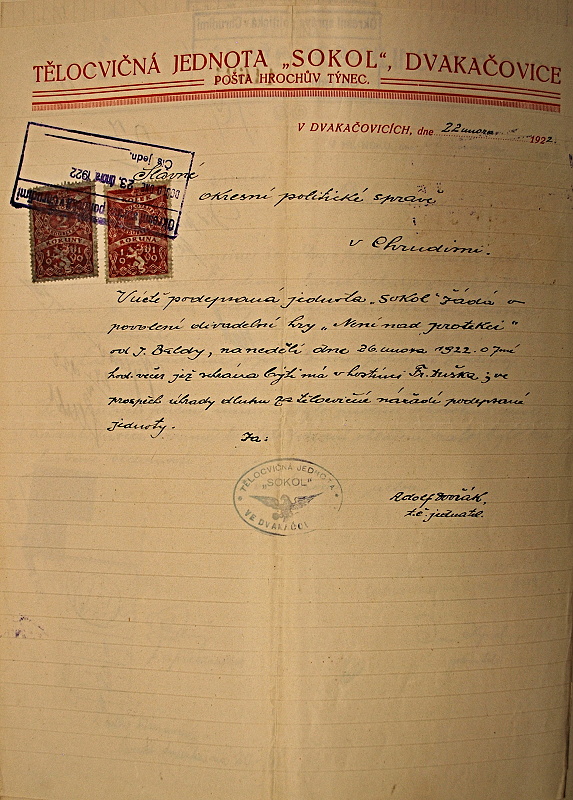 TĚLOCVIČNÁ JEDNOTA „SOKOL", DVAKAČOVICE
POŠTA HROCHŮV TÝNEC.
V DVAKAČOVICÍCH, dne 22 února 1922.
Slavné
okresní politické správě
v Chrudimi.
Čís. jedn.
23. 1922
KORUNY
KORUNA
Uctě podepsaná jednota „Sokol" žádá o
povolení divadelní hry „Není nad protekci"
od J. Baldy, na neděli dne 26. února 1922. o 7mé
hod. večer jež sehrána býti má v hostinci Fr. Duška; ve
prospěch úhrady dluhu za tělocvičné nářadí podepsané
jednoty.
Za:
TĚLOCVIČNÁ JEDNOTA
„SOKOL"
VE
Adolf Dvořák,
t.č. jednatel.